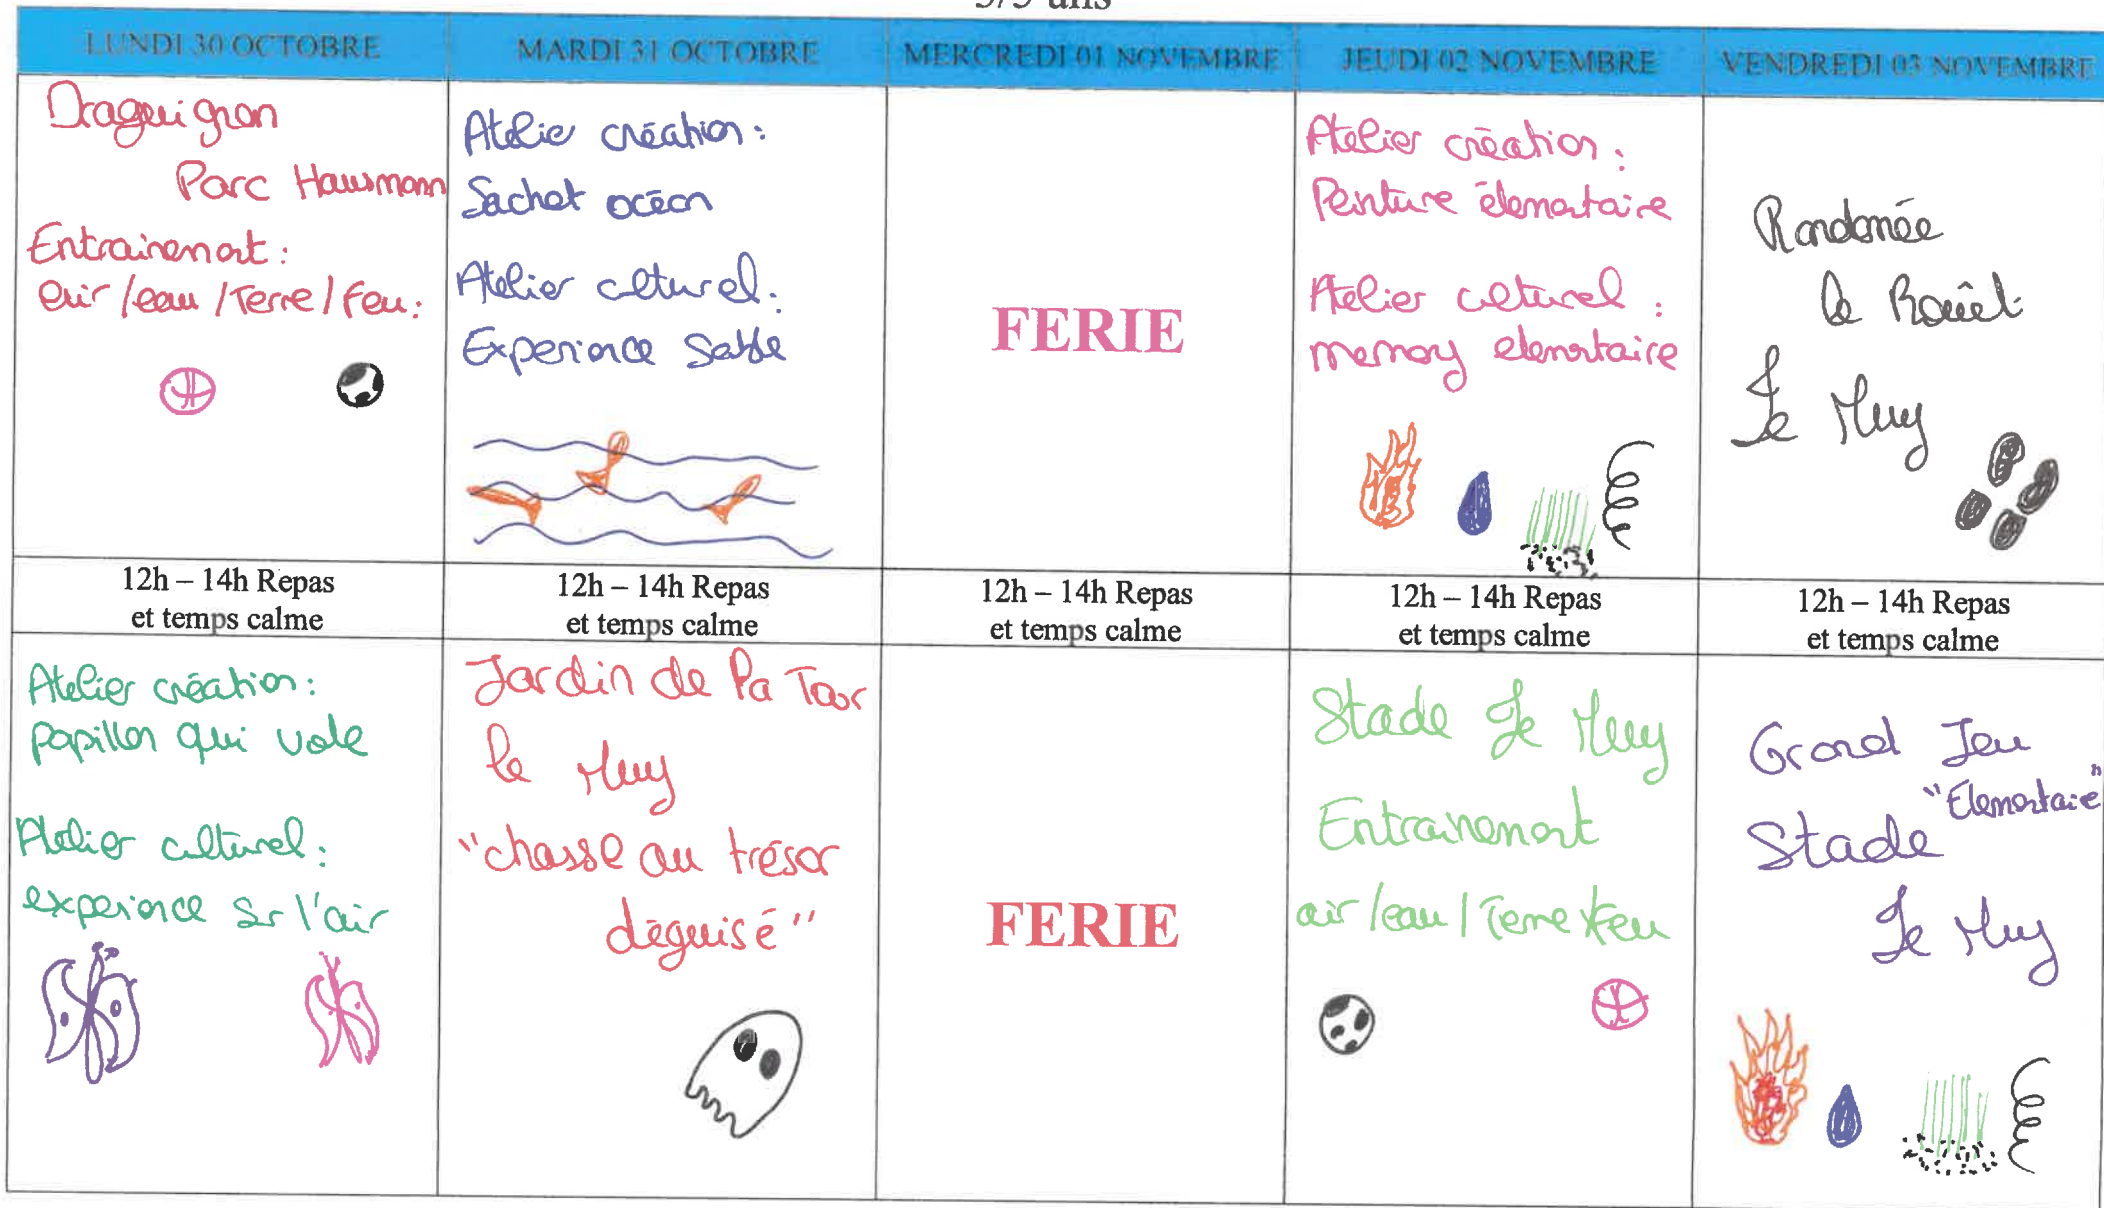 3/5 ans
LUNDI 30 OCTOBRE
MARDI 31 OCTOBRE
MERCREDI 01 NOVEMBRE
JEUDI 02 NOVEMBRE
VENDREDI 03 NOVEMBRE
Draguignan
Parc Hausmann
Entrainement :
air / eau / Terre / Feu :
Atelie création :
Sachet océan
Atelier culturel :
Experience Sable
FERIE
Atelier création :
Peinture élementaire
Atelier culturel :
memory elementaire
Randonnée
le Rouët
Le Muy
12h – 14h Repas
et temps calme
12h – 14h Repas
et temps calme
12h – 14h Repas
et temps calme
12h – 14h Repas
et temps calme
12h – 14h Repas
et temps calme
Atelier création :
Papillon qui vole
Atelier culturel :
experience sur l'air
Jardin de la Tour
le Muy
"chasse au trésor
déguisé"
FERIE
Stade Le Muy
Entrainement
air / eau / Terre / Feu
Grand Jeu
"Elementaire"
Stade
Le Muy